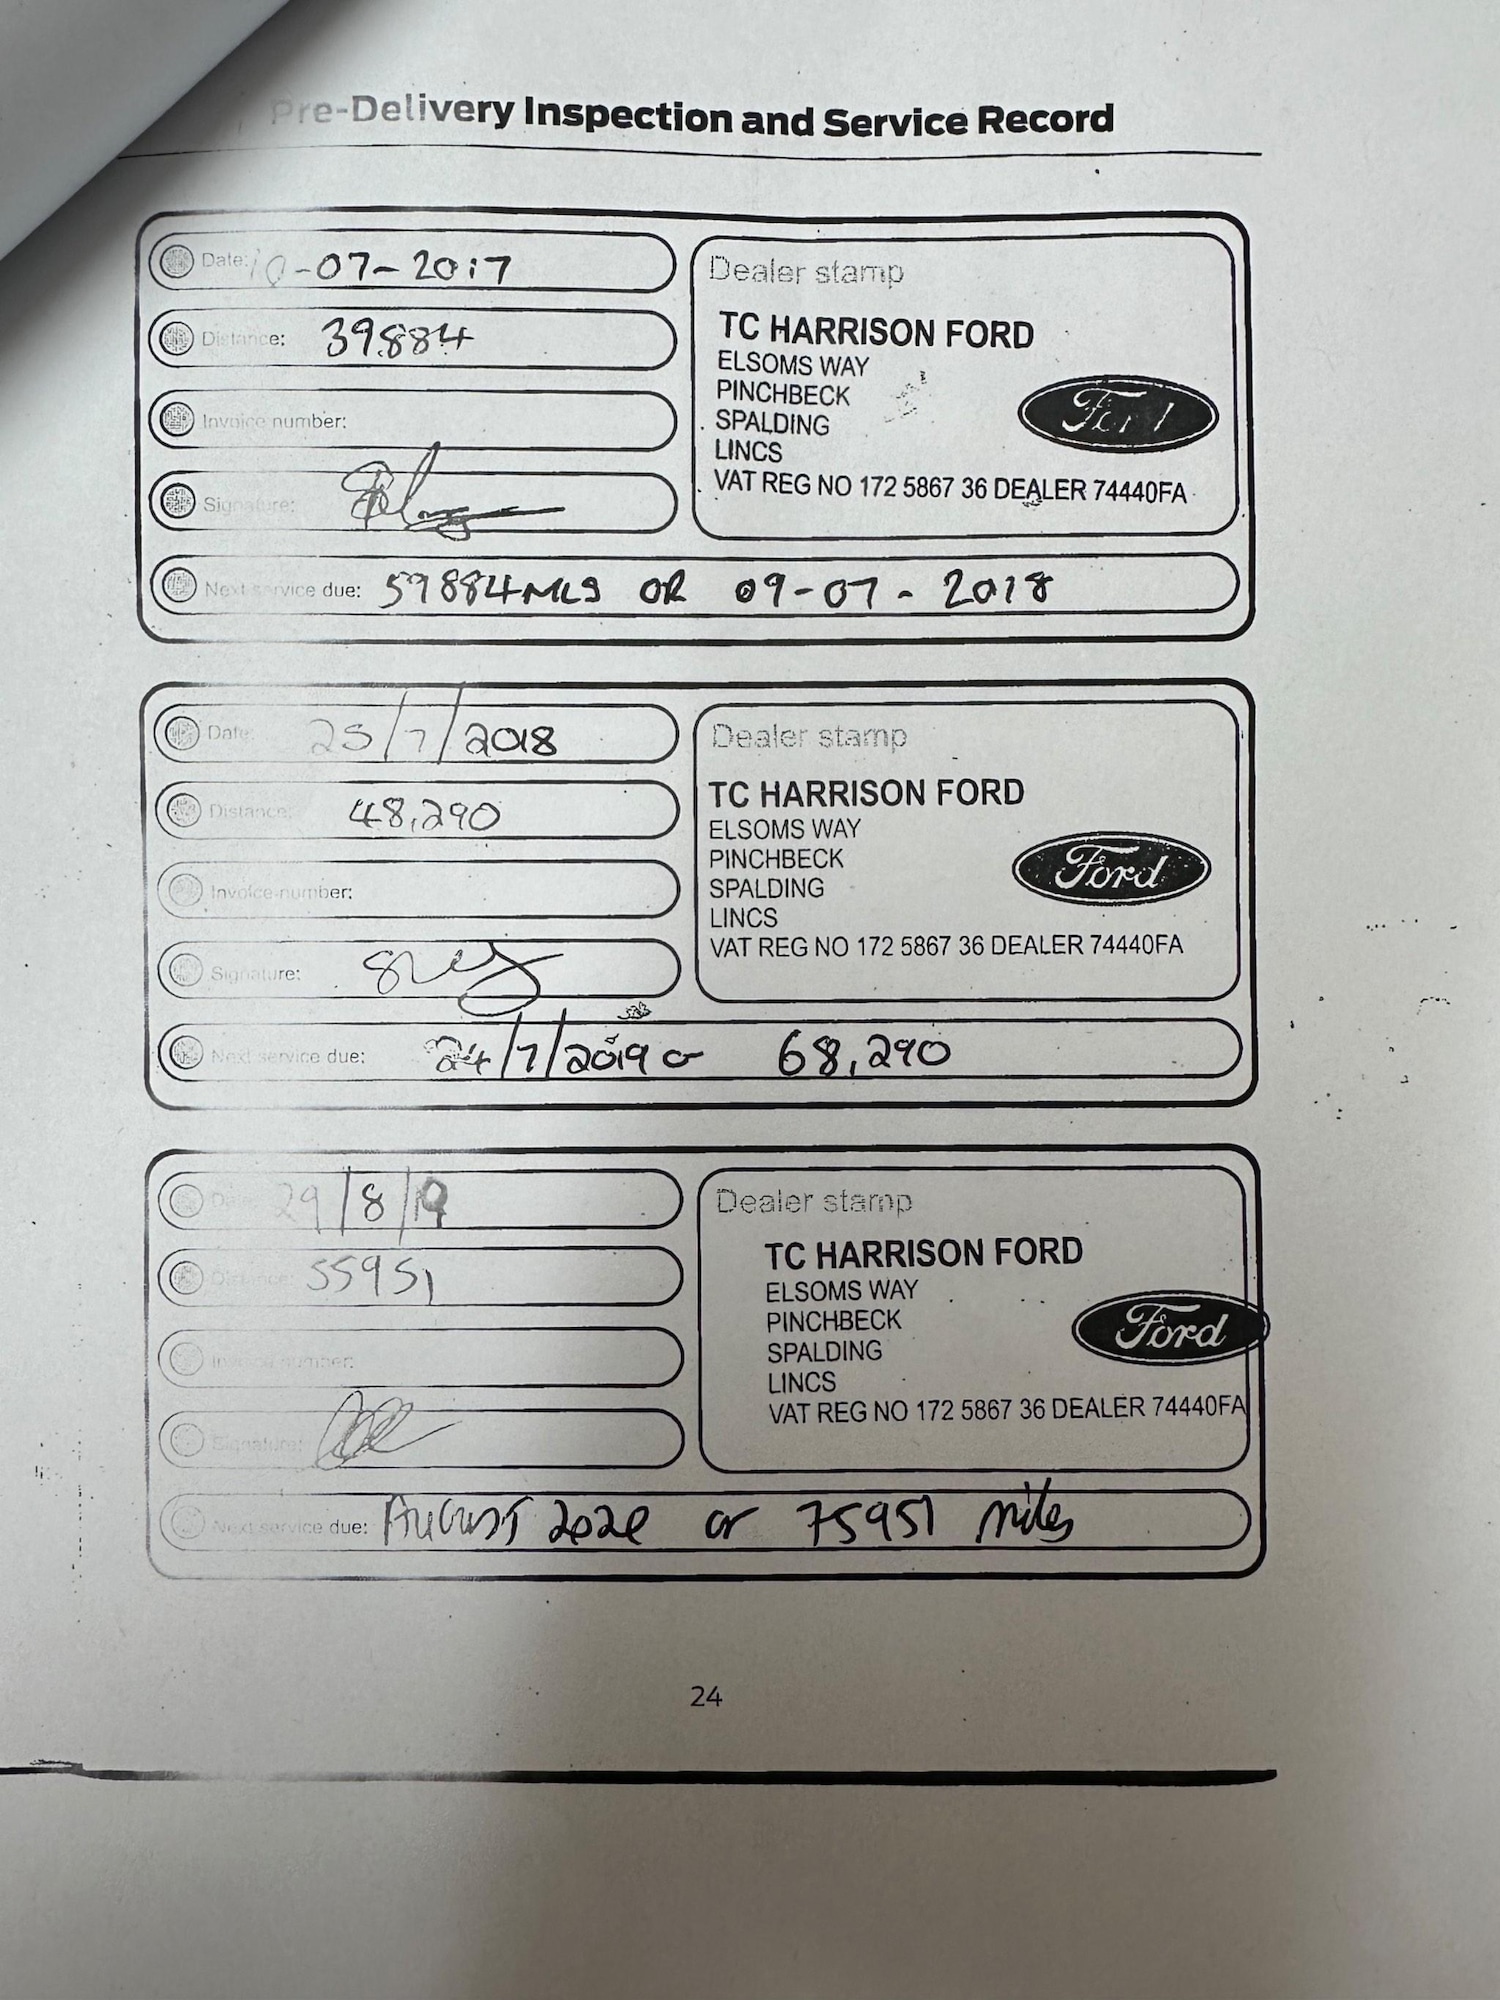 Pre-Delivery Inspection and Service Record
Date: 10-07-2017
Distance: 39884
Invoice number:
Signature:
Dealer stamp
TC HARRISON FORD
ELSOMS WAY
PINCHBECK
SPALDING
LINCS
VAT REG NO 172 5867 36 DEALER 74440FA
Ford
Next service due: 59884 MLS OR 09-07-2018
Date: 25/7/2018
Distance: 48,290
Invoice number:
Signature:
Dealer stamp
TC HARRISON FORD
ELSOMS WAY
PINCHBECK
SPALDING
LINCS
VAT REG NO 172 5867 36 DEALER 74440FA
Ford
Next service due: 24/7/2019 or 68,290
Date: 29/8/19
Distance: 55951
Invoice number:
Signature:
Dealer stamp
TC HARRISON FORD
ELSOMS WAY
PINCHBECK
SPALDING
LINCS
VAT REG NO 172 5867 36 DEALER 74440FA
Ford
Next service due: AUGUST 2020 or 75951 miles
24